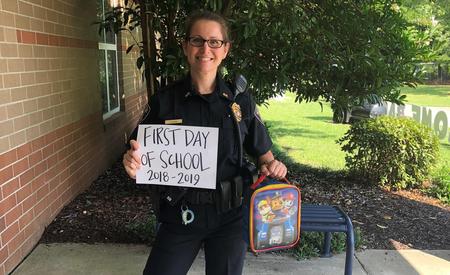 FIRST DAY
OF SCHOOL
2018-2019